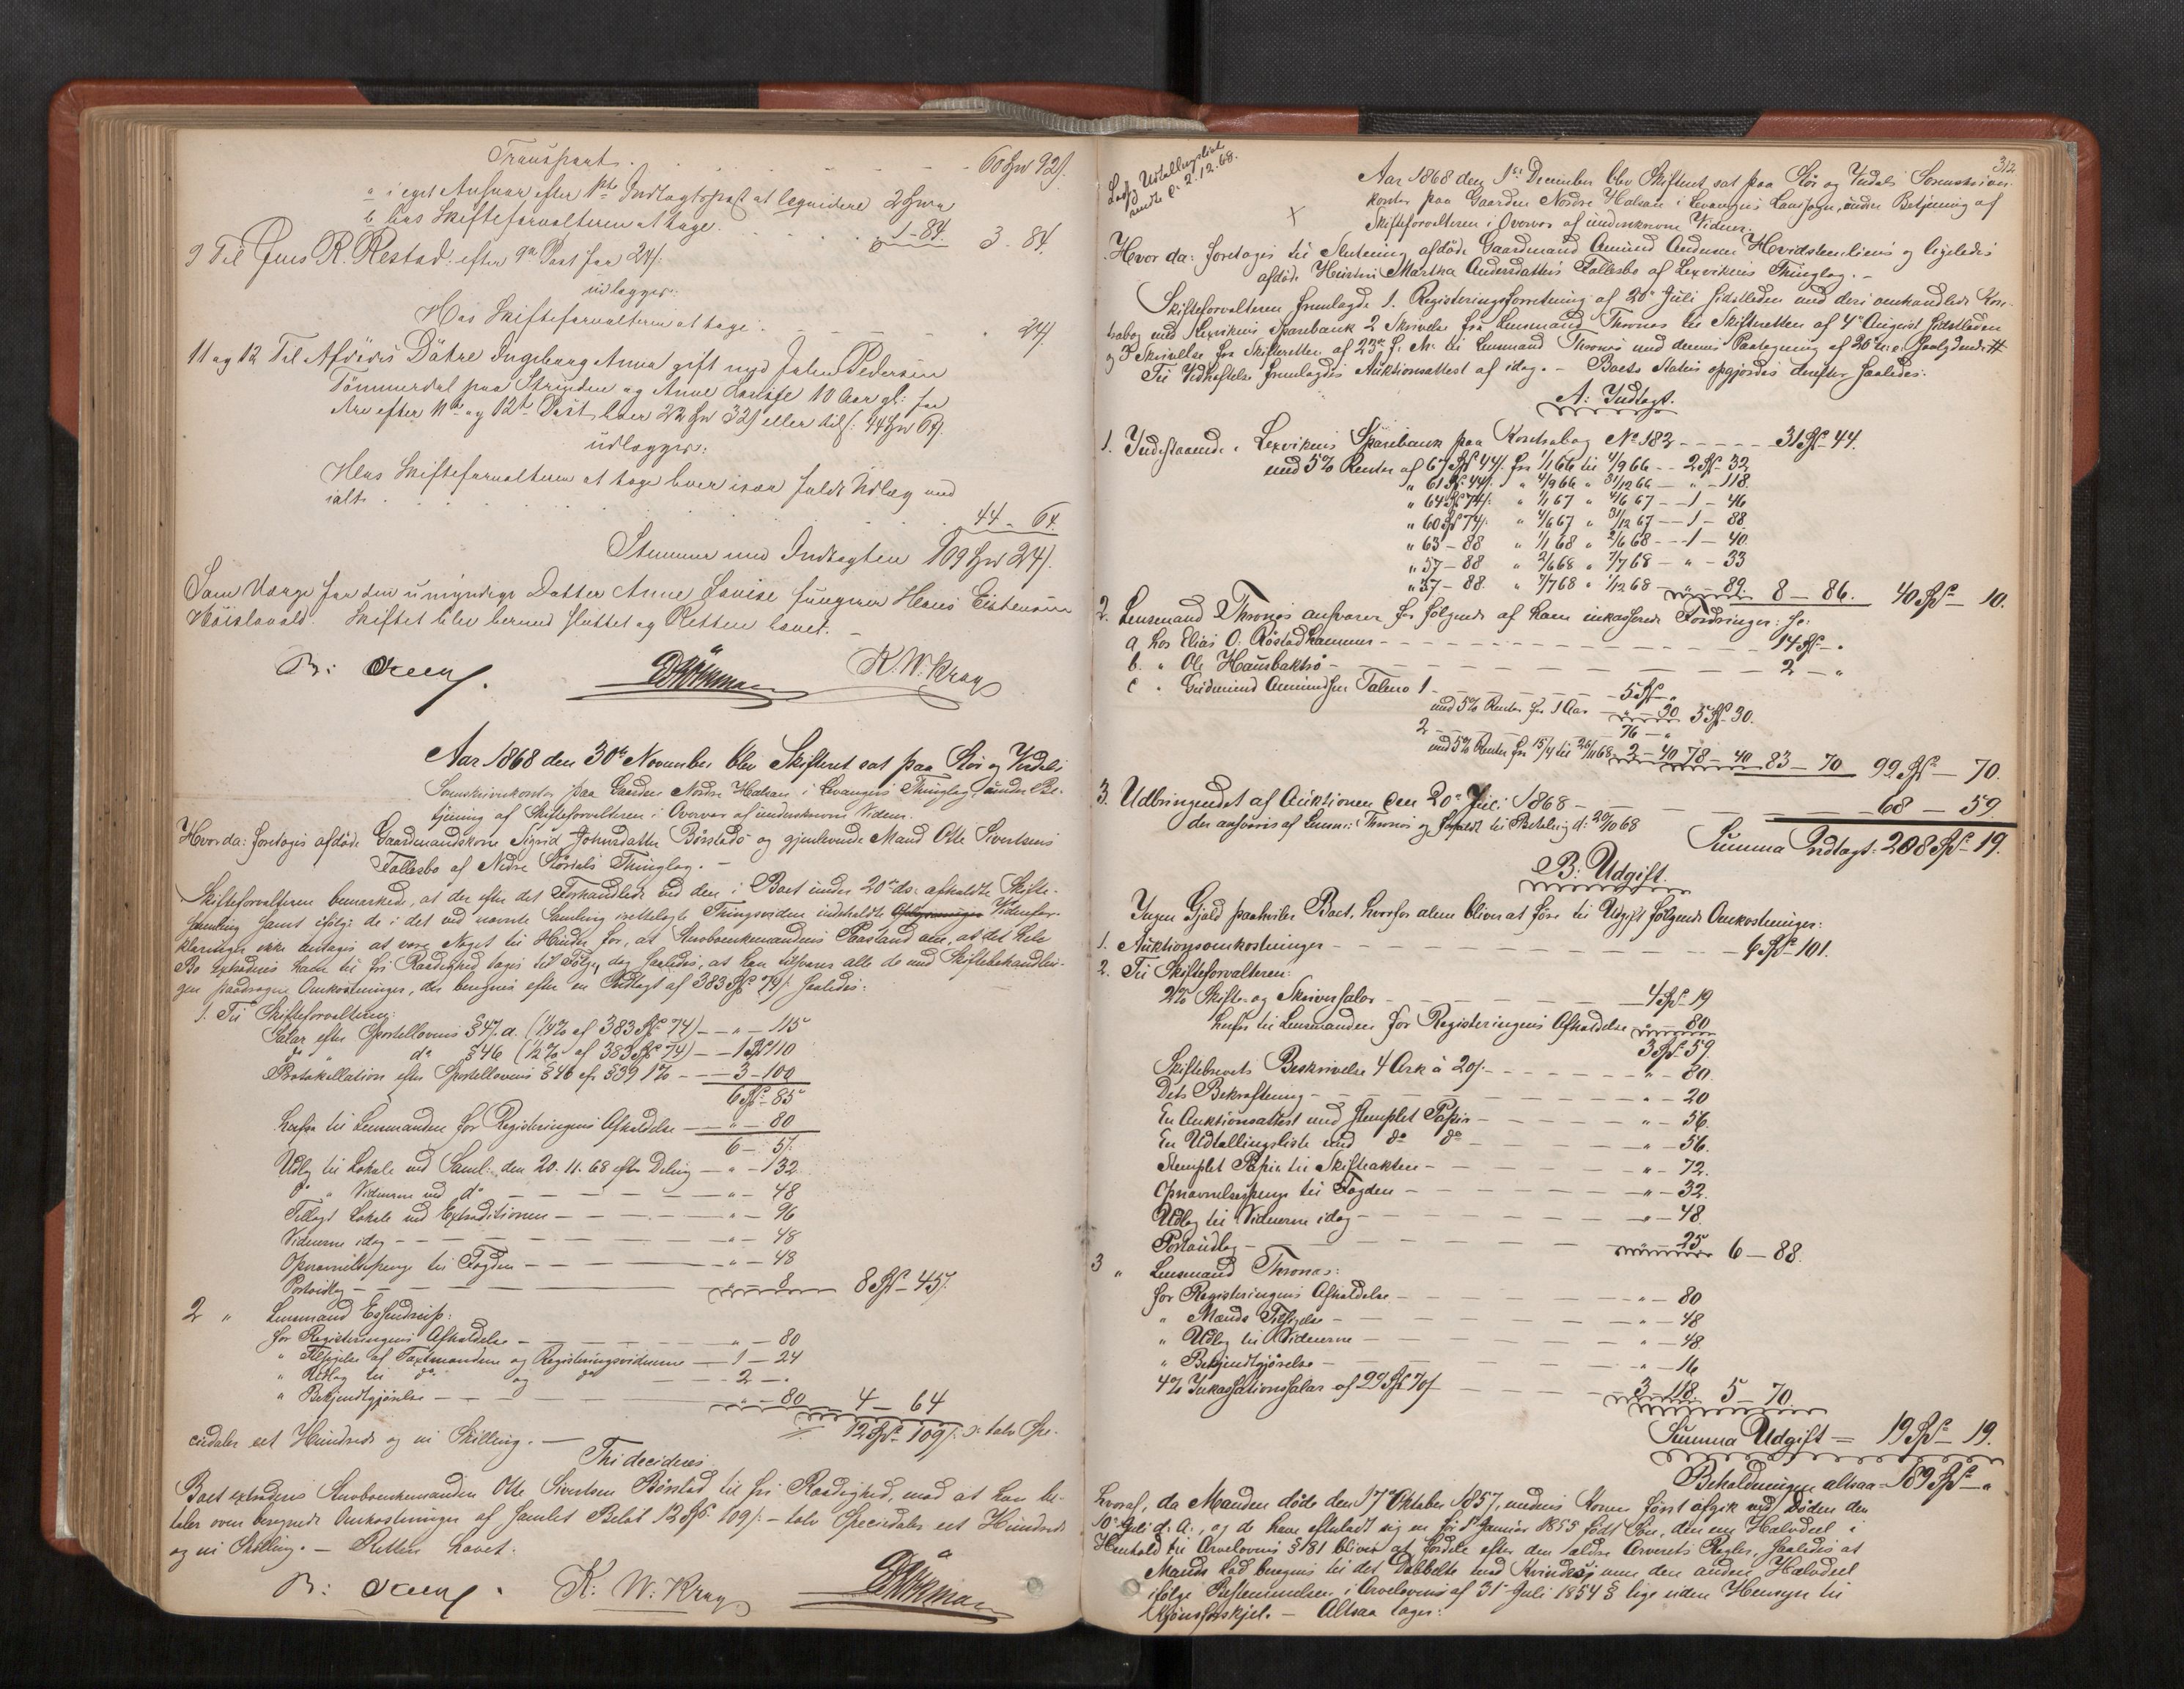 Transport . . . . . 60 Spd 92 s.
a i eget Ansvar efter 1ste Indtægtspost at leqvidere 2 Spd "
b hos Skifteforvalteren at tage . . . . . 1 - 84. 3 - 84.
9 Til Jens R. Restad efter 9de Post for 24 s.
udlægges:
Hos Skifteforvalteren at tage . . . . . 24 s.
11 og 12 Til Afdødes Døtre Ingeborg Anna gift med Johan Pedersen
Tømmerdal paa Strinden og Anne Lovise 10 Aar gl: for
Arv efter 11te og 12te Post, hver 22 Spd 32 s eller tils: 44 Spd 64 s.
udlægges:
Hos Skifteforvalteren at tage hver især fuldt Udlæg med
ialt . . . . . 44 - 64.
Stemmer med Indtægten 109 Spd 24 s.
Som Værge for den umyndige Datter Anne Lovise fungerer Hans Eistensen
Skiftet blev hermed sluttet og Retten hævet. –
K. W. Krag
Aar 1868 den 30te November blev Skifteret sat paa Stør og Værdals
Sorenskriverkontor paa Gaarden Nordre Halsan i Levangers Thinglag, under Be-
tjening af Skifteforvalteren i Overvær af underskrevne Vidner.
Hvor da: foretoges afdøde Gaardmandskone Sigrid Johnsdatter Børstads og gjenlevende Mand Otte Sivertsens
Fællesbo af Nedre Størdals Thinglag. –
Skifteforvalteren bemærkede, at der efter det Forhandlede ved den i Boet under 20de ds: afholdte Skifte-
samling samt ifølge de i det ved nævnte Samling irettelagte Thingsvidne indeholdte Vidnefor-
klaringer ikke antages at være Noget til Hinder for, at Stervboenkemandens Paastand om, at det hele
Bo extraderes ham til fri Raadighed tages til Følge, dog saaledes, at han tilsvarer alle de med Skiftebehandlin-
gen paadragne Omkostninger, der beregnes efter en Indtægt af 383 Spd 74 s. saaledes:
1. Til Skifteforvaltning:
Salær efter Sportellovens § 47. a. (1/4% af 383 Spd 74) – – " – 115
do " do § 46 (1/2% af 383 Spd 74) – – 1 Spd 110
Protokollation efter Sportellovens § 46 cfr § 39 1% – – – 3 – 100
6 Spd – 85
herfra til Lensmanden for Registreringens Afholdelse – " – 80
6 – 5 s.
Udlæg til Lokale ved Saml: den 20.11.68 efter Deling – " – 132
do " Vidnerne ved do – – – – " – 48
Tillagt Lokale ved Extraditionen – – – – " – 96
Vidnerne idag – – – – – – " – 48
Opnævnelsespenge til Fogden – – – – " – 48
Portoudlæg – – – – – " – 8 8 Spd – 45 s.
2 " Lensmand Essendrup:
for Registreringens Afholdelse – – – – " – 80
" Tilsigelse af Taxtmændene og Registreringsvidnerne – 1 – 24
" Udlæg til do og do – – – 2 – "
" Bekjendtgjørelse – – – – – " – 80 4 – 64
12 Spd 109 s. ɔ: tolv Spe-
ciedaler eet Hundrede og ni Skilling. –
Thi decideres
Boet extraderes Stervboenkemanden Otte Sivertsen Børstad til fri Raadighed, mod at han be-
taler oven beregnede Omkostninger af samlet Beløb 12 Spd. 109 s. – tolv Speciedaler eet Hundrede
og ni Skilling. – Retten hævet.
K. W. Krag
312
Udtællingsliste
d. 2.12.68.
X
Aar 1868 den 1ste December blev Skifteret sat paa Stør og Værdals Sorenskriver-
kontor paa Gaarden Nordre Halsan i Levangers Landsogn, under Betjening af
Skifteforvalteren i Overvær af underskrevne Vidner.
Hvor da: foretoges til Slutning afdøde Gaardmand Amund Andersen Hvidsteenliens og ligeledes
afdøde Hustru Martha Andersdatters Fællesbo af Lexvikens Thinglag. –
Skifteforvalteren fremlagde 1. Registreringsforretning af 20de Juli sidstleden med deri omhandlede Kon-
trabog med Lexvikens Sparebank 2 Skrivelse fra Lensmand Thrones til Skifteretten af 4de August sidstleden
og 3 Skrivelse fra Skifteretten af 23de f. M. til Lensmand Thrones med dennes Paategning af 26de s: saalydende #
Til Vedhæftelse fremlagdes Auktionsattest af idag. – Boets Status opgjordes derefter saaledes:
A: Indtægt.
1. Indestaaende i Lexvikens Sparebank paa Kontrabog No 182 – – – – 31 Spd – 44.
med 5% Renter af 67 Spd 44 s. fra 1/1 66 til 4/9 66 – – 2 Spd – 32
" 61 Spd 44 s. " 4/9 66 " 31/12 66 – " – 118.
" 64 Spd 74 s. " 1/1 67 " 4/6 67 – – 1 – 46
" 60 Spd 74 s. " 4/6 67 " 31/12 67 – – 1 – 88
" 63 – 88 " 1/1 68 " 2/6 68 – – – 1 – 40.
" 57 – 88 " 2/6 68 " 7/7 68 – " – 33
" 37 – 88. " 7/7 68 " 1/12 68 – " – 89. 8 – 86. 40 Spd – 10.
2. Lensmand Thrones ansvarer for følgende af ham inkasserede Fordringer: s:
a hos Elias O. Røstadkammer – – – – – 14 Spd – "
b. " Ole Hausbaktrø – – – – – 2 – "
c " Gudmund Amundsen Talmo 1 – – – – – 5 Spd – "
med 5% Renter for 1 Aar – " – 30 5 Spd – 30.
2 – – – – 76 – "
med 5% Renter fra 15/4 til 26/11 68 – 2 – 40 78 – 40 83 – 70 99 Spd – 70.
3. Udbringendet af Auktionen den 20de Juli 1868 – – – – 68 – 59.
der ansvares af Lensm: Thrones og forfaldt til Betaling d: 20/10 68
Summa Indtægt: 208 Spd – 19.
B: Udgift.
Ingen Gjæld paahviler Boet, hvorfor alene bliver at føre til Udgift følgende Omkostninger:
1. Auktionsomkostninger – – – – – – – 6 Spd – 101.
2. Til Skifteforvalteren:
2% Skifte- og Skriversalær – – – – – – 4 Spd – 19
herfra til Lensmanden for Registreringens Afholdelse " – 80
3 Spd – 59.
Skiftebrevets Beskrivelse 4 Ark à 20 s. – – – – – " – 80.
Dets Bekræftning – – – – – – – " – 20
En Auktionsattest med stemplet Papir – – – – " – 56.
En Udtællingsliste med do do – – – – " – 56.
Stemplet Papir til Skifteakten – – – – – " – 72.
Opnævnelsespenge til Fogden – – – – – " – 32.
Udlæg til Vidnerne idag – – – – – " – 48.
Portoudlæg – – – – – – – " – 25 6 – 88.
3 " Lensmand Thrones:
for Registreringens Afholdelse – – – – – " – 80
" Mænds Tilsigelse – – – – – " – 48
" Udlæg til Vidnerne – – – – – " – 48.
" Bekjendtgjørelse – – – – – " – 16
4% Inkassationssalær af 99 Spd 70 s – – – 3 – 118. 5 – 70.
Summa Udgift = 19 Spd – 19.
Beholdningen altsaa = 189 Spd – "
hvoraf, da Manden døde den 17de Oktober 1857, medens Konen først afgik ved Døden den
10de Juli d. A., og de have efterladt sig en før 1ste Januar 1855 født Søn, den ene Halvdeel i
Henhold til Arvelovens § 81 bliver at fordele efter den ældre Arverets Regler, saaledes at
Mands Lod beregnes til det Dobbelte mod Kvindes, men den anden Halvdeel
ifølge Bestemmelsen i Arveloven af 31 Juli 1854 § lige uden Hensyn til
Kjønsforskjel. – Altsaa tages: